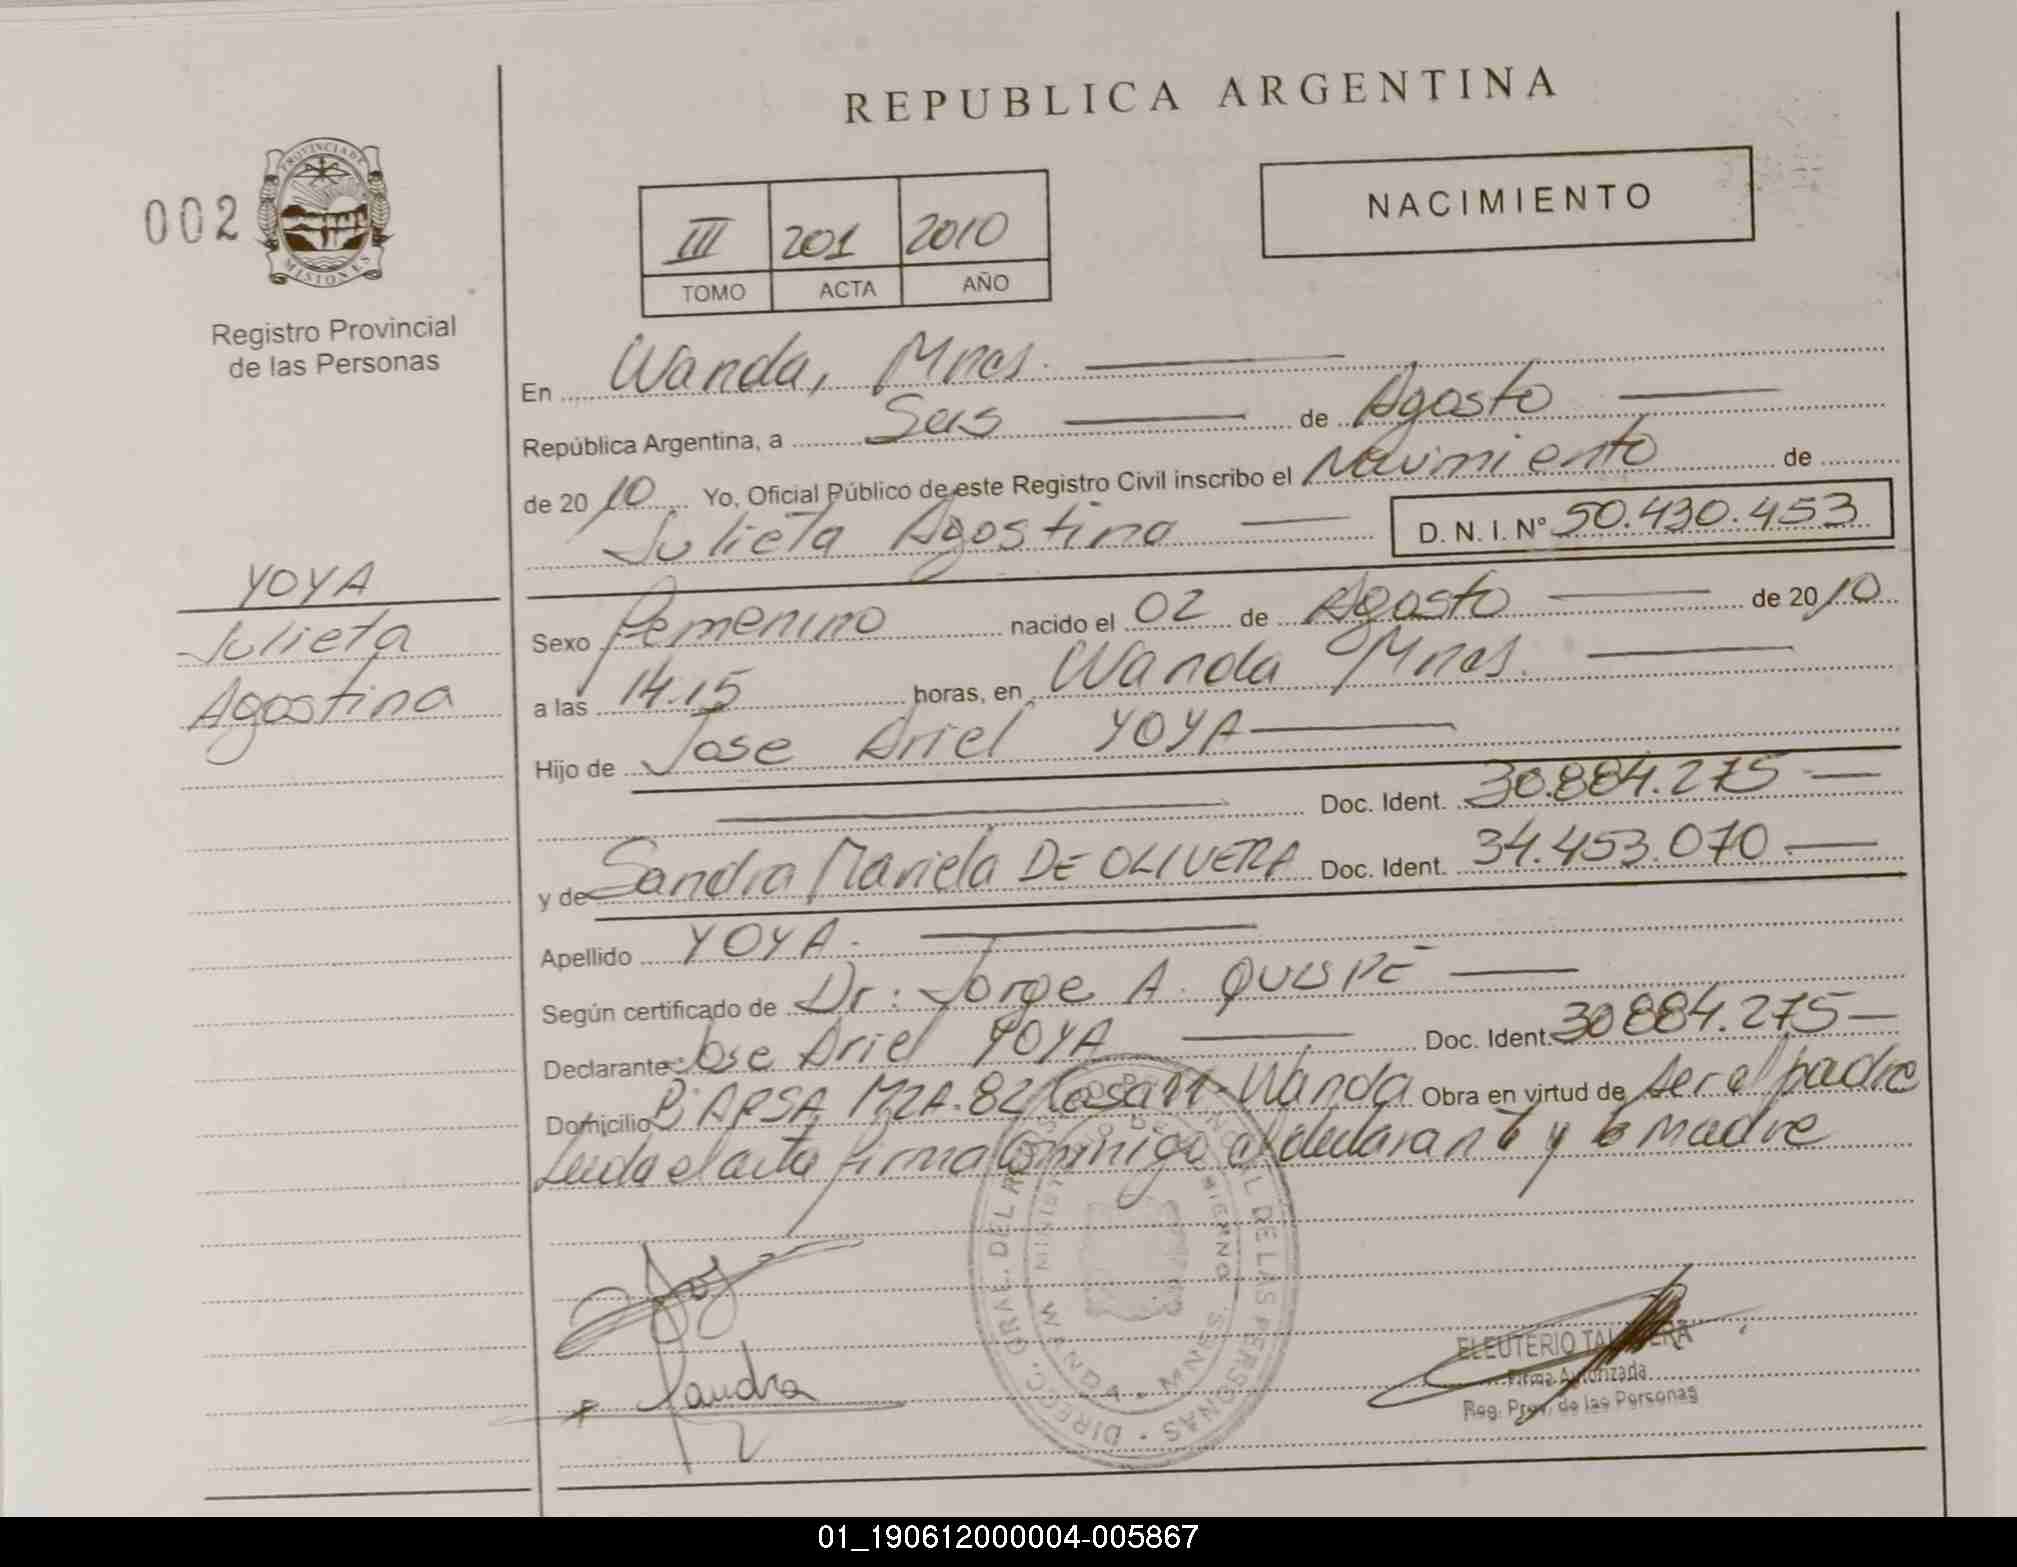 REPUBLICA ARGENTINA
002
PROVINCIA DE MISIONES
Registro Provincial
de las Personas
III 201 2010
TOMO ACTA AÑO
NACIMIENTO
YOYA
Julieta
Agostina
En Wanda, Mnes.
República Argentina, a Seis de Agosto
de 2010 Yo, Oficial Público de este Registro Civil inscribo el Nacimiento de
Julieta Agostina D. N. I. Nº 50.430.453
Sexo Femenino nacido el 02 de Agosto de 2010
a las 14.15 horas, en Wanda Mnes.
Hijo de Jose Ariel YOYA
Doc. Ident. 30.884.275
y de Sandra Mariela DE OLIVERA Doc. Ident. 34.453.070
Apellido YOYA.
Según certificado de Dr. Jorge A. QUISPE
Declarante Jose Ariel YOYA Doc. Ident. 30884.275
Domicilio Bº APSA MZA. 82 Casa 11 - Wanda Obra en virtud de ser el padre
Leida el acta firma Conmigo el declarante y la madre
DIREC. GRAL. DEL REG. PROVINCIAL DE LAS PERSONAS
MINISTERIO DE GOBIERNO
WANDA - MNES.
Sandra
ELEUTERIO TALAVERA
Firma Autorizada
Reg. Prov. de las Personas
01_190612000004-005867